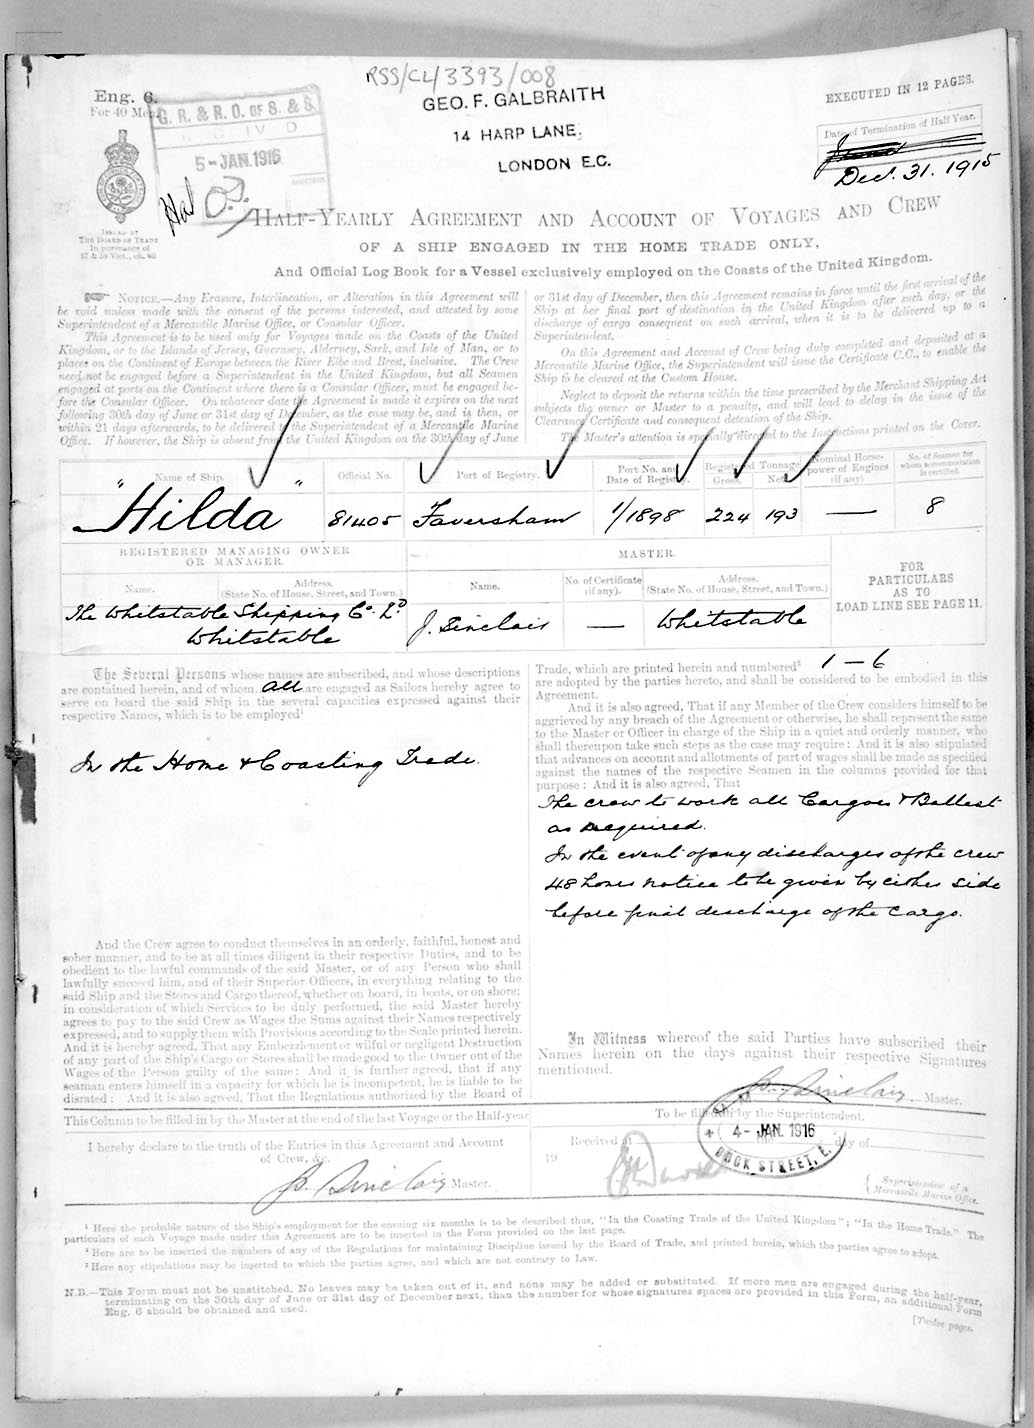 RSS/CL/3393/008
Eng. 6.
For 40 Men.
G. R. & R. O. OF S. & S.
5-JAN.1916
GEO. F. GALBRAITH
14 HARP LANE,
LONDON E.C.
EXECUTED IN 12 PAGES.
Date of Termination of Half Year.
Dec. 31. 1915
ISSUED BY
THE BOARD OF TRADE
In pursuance of
57 & 58 Vict., ch. 60
HALF-YEARLY AGREEMENT AND ACCOUNT OF VOYAGES AND CREW
OF A SHIP ENGAGED IN THE HOME TRADE ONLY,
And Official Log Book for a Vessel exclusively employed on the Coasts of the United Kingdom.
NOTICE.—Any Erasure, Interlineation, or Alteration in this Agreement will
be void unless made with the consent of the persons interested, and attested by some
Superintendent of a Mercantile Marine Office, or Consular Officer.
This Agreement is to be used only for Voyages made on the Coasts of the United
Kingdom, or to the Islands of Jersey, Guernsey, Alderney, Sark, and Isle of Man, or to
places on the Continent of Europe between the River Elbe and Brest, inclusive. The Crew
need not be engaged before a Superintendent in the United Kingdom, but all Seamen
engaged at ports on the Continent where there is a Consular Officer, must be engaged be-
fore the Consular Officer. On whatever date the Agreement is made it expires on the next
following 30th day of June or 31st day of December, as the case may be, and is then, or
within 21 days afterwards, to be delivered to the Superintendent of a Mercantile Marine
Office. If however, the Ship is absent from the United Kingdom on the 30th day of June
or 31st day of December, then this Agreement remains in force until the first arrival of the
Ship at her final port of destination in the United Kingdom after such day, or the
discharge of cargo consequent on such arrival, when it is to be delivered up to a
Superintendent.
On this Agreement and Account of Crew being duly completed and deposited at a
Mercantile Marine Office, the Superintendent will issue the Certificate C.C., to enable the
Ship to be cleared at the Custom House.
Neglect to deposit the returns within the time prescribed by the Merchant Shipping Act
subjects the owner or Master to a penalty, and will lead to delay in the issue of the
Clearance Certificate and consequent detention of the Ship.
The Master's attention is specially directed to the Instructions printed on the Cover.
Name of Ship.
Official No.
Port of Registry.
Port No. and
Date of Registry.
Registered Tonnage
Gross.
Nett.
Nominal Horse-
power of Engines
(if any)
No. of Seamen for
whom accommodation
is certified.
"Hilda" 81405 Faversham 1/1898 224 193 — 8
REGISTERED MANAGING OWNER
OR MANAGER.
MASTER.
Name.
Address.
(State No. of House, Street, and Town.)
Name.
No. of Certificate
(if any).
Address.
(State No. of House, Street, and Town.)
FOR
PARTICULARS
AS TO
LOAD LINE SEE PAGE 11.
The Whitstable Shipping Co. Ld
Whitstable
J. Sinclair — Whitstable
The Several Persons whose names are subscribed, and whose descriptions
are contained herein, and of whom all are engaged as Sailors hereby agree to
serve on board the said Ship in the several capacities expressed against their
respective Names, which is to be employed¹
In the Home & Coasting Trade.
And the Crew agree to conduct themselves in an orderly, faithful, honest and
sober manner, and to be at all times diligent in their respective Duties, and to be
obedient to the lawful commands of the said Master, or of any Person who shall
lawfully succeed him, and of their Superior Officers, in everything relating to the
said Ship and the Stores and Cargo thereof, whether on board, in boats, or on shore;
in consideration of which Services to be duly performed, the said Master hereby
agrees to pay to the said Crew as Wages the Sums against their Names respectively
expressed, and to supply them with Provisions according to the Scale printed herein.
And it is hereby agreed, That any Embezzlement or wilful or negligent Destruction
of any part of the Ship's Cargo or Stores shall be made good to the Owner out of the
Wages of the Person guilty of the same: And it is further agreed, that if any
seaman enters himself in a capacity for which he is incompetent, he is liable to be
disrated: And it is also agreed, That the Regulations authorized by the Board of
Trade, which are printed herein and numbered² 1 – 6
are adopted by the parties hereto, and shall be considered to be embodied in this
Agreement.
And it is also agreed, That if any Member of the Crew considers himself to be
aggrieved by any breach of the Agreement or otherwise, he shall represent the same
to the Master or Officer in charge of the Ship in a quiet and orderly manner, who
shall thereupon take such steps as the case may require: And it is also stipulated
that advances on account and allotments of part of wages shall be made as specified
against the names of the respective Seamen in the columns provided for that
purpose: And it is also agreed, That
The crew to work all Cargoes & Ballast
as required.
In the event of any discharges of the crew
48 hours notice to be given by either side
before final discharge of the Cargo.
In Witness whereof the said Parties have subscribed their
Names herein on the days against their respective Signatures
mentioned.
J. Sinclair Master.
This Column to be filled in by the Master at the end of the last Voyage or the Half-year
I hereby declare to the truth of the Entries in this Agreement and Account
of Crew, &c.
J. Sinclair Master.
To be filled in by the Superintendent.
Received at
day of
19
4- JAN. 1916
DOCK STREET, E.
Superintendent of a
Mercantile Marine Office.
¹ Here the probable nature of the Ship's employment for the ensuing six months is to be described thus, "In the Coasting Trade of the United Kingdom"; "In the Home Trade." The
particulars of each Voyage made under this Agreement are to be inserted in the Form provided on the last page.
² Here are to be inserted the numbers of any of the Regulations for maintaining Discipline issued by the Board of Trade, and printed herein, which the parties agree to adopt.
³ Here any stipulations may be inserted to which the parties agree, and which are not contrary to Law.
N.B.—This Form must not be unstitched. No leaves may be taken out of it, and none may be added or substituted. If more men are engaged during the half-year,
terminating on the 30th day of June or 31st day of December next, than the number for whose signatures spaces are provided in this Form, an additional Form
Eng. 6 should be obtained and used.
[Twelve pages.